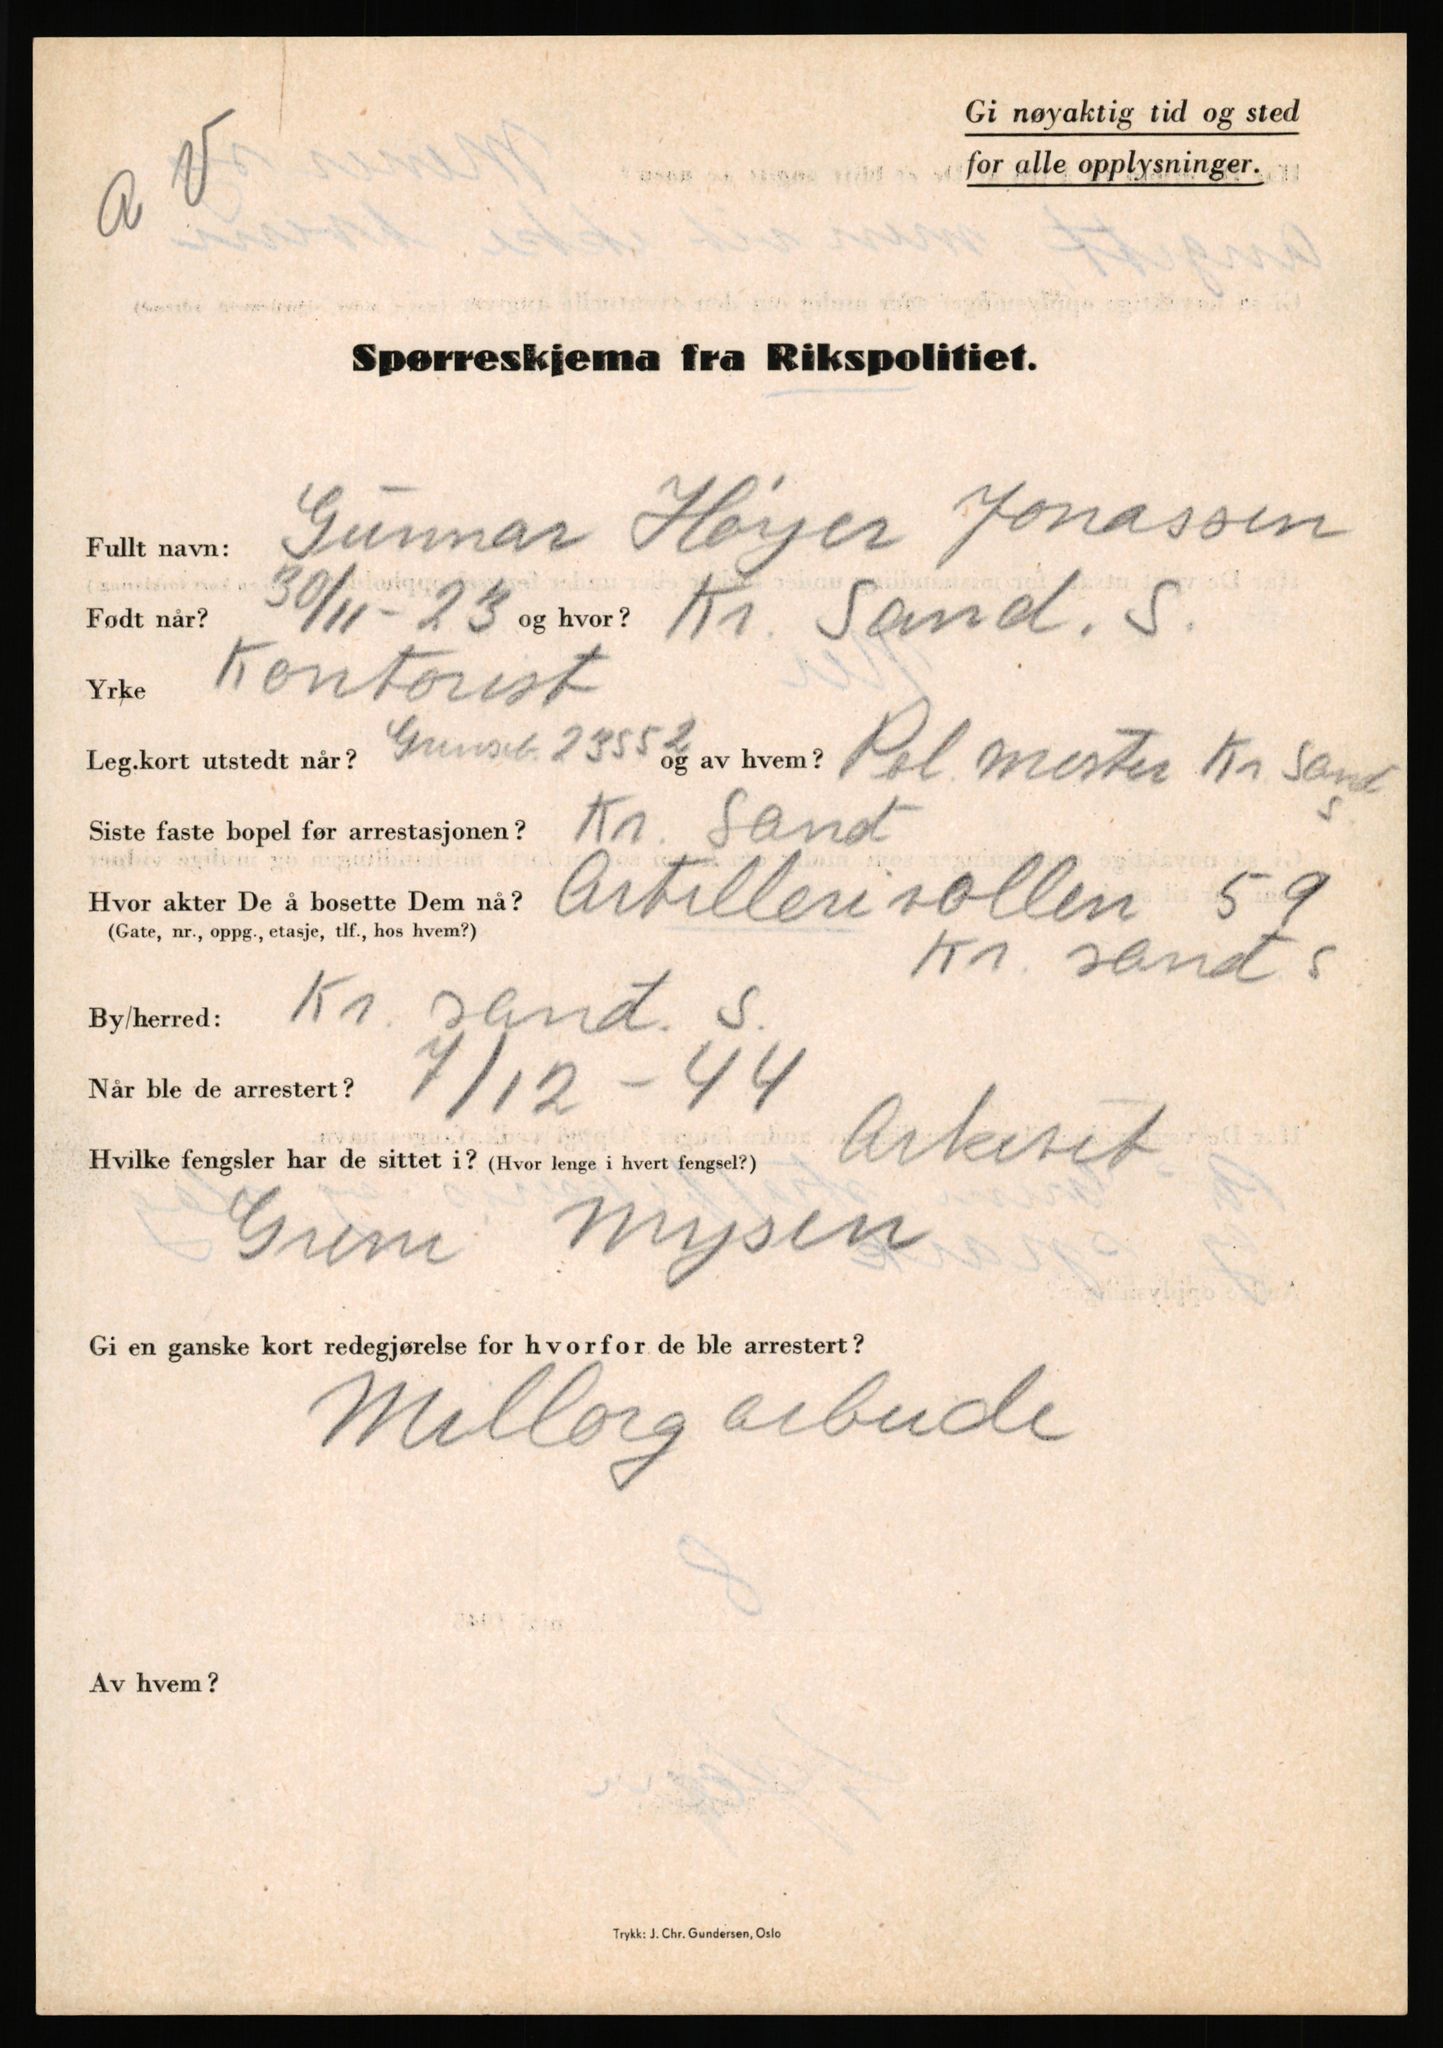 a V
Gi nøyaktig tid og sted
for alle opplysninger.
Spørreskjema fra Rikspolitiet.
Fullt navn: Gunnar Høyer Jonassen
Født når? 30/11-23 og hvor? Kr. Sand. S.
Yrke Kontorist
Leg.kort utstedt når? Grenseb. 23552 og av hvem? Pol. mester Kr. Sand S.
Siste faste bopel før arrestasjonen? Kr. Sand
Hvor akter De å bosette Dem nå? Artillerivollen 59
(Gate, nr., oppg., etasje, tlf., hos hvem?) Kr. sand s
By/herred: Kr. sand. S.
Når ble de arrestert? 7/12-44
Hvilke fengsler har de sittet i? (Hvor lenge i hvert fengsel?) Arkivet
Grini Mysen
Gi en ganske kort redegjørelse for hvorfor de ble arrestert?
Millorg arbeide
Av hvem?
Trykk: J. Chr. Gundersen, Oslo